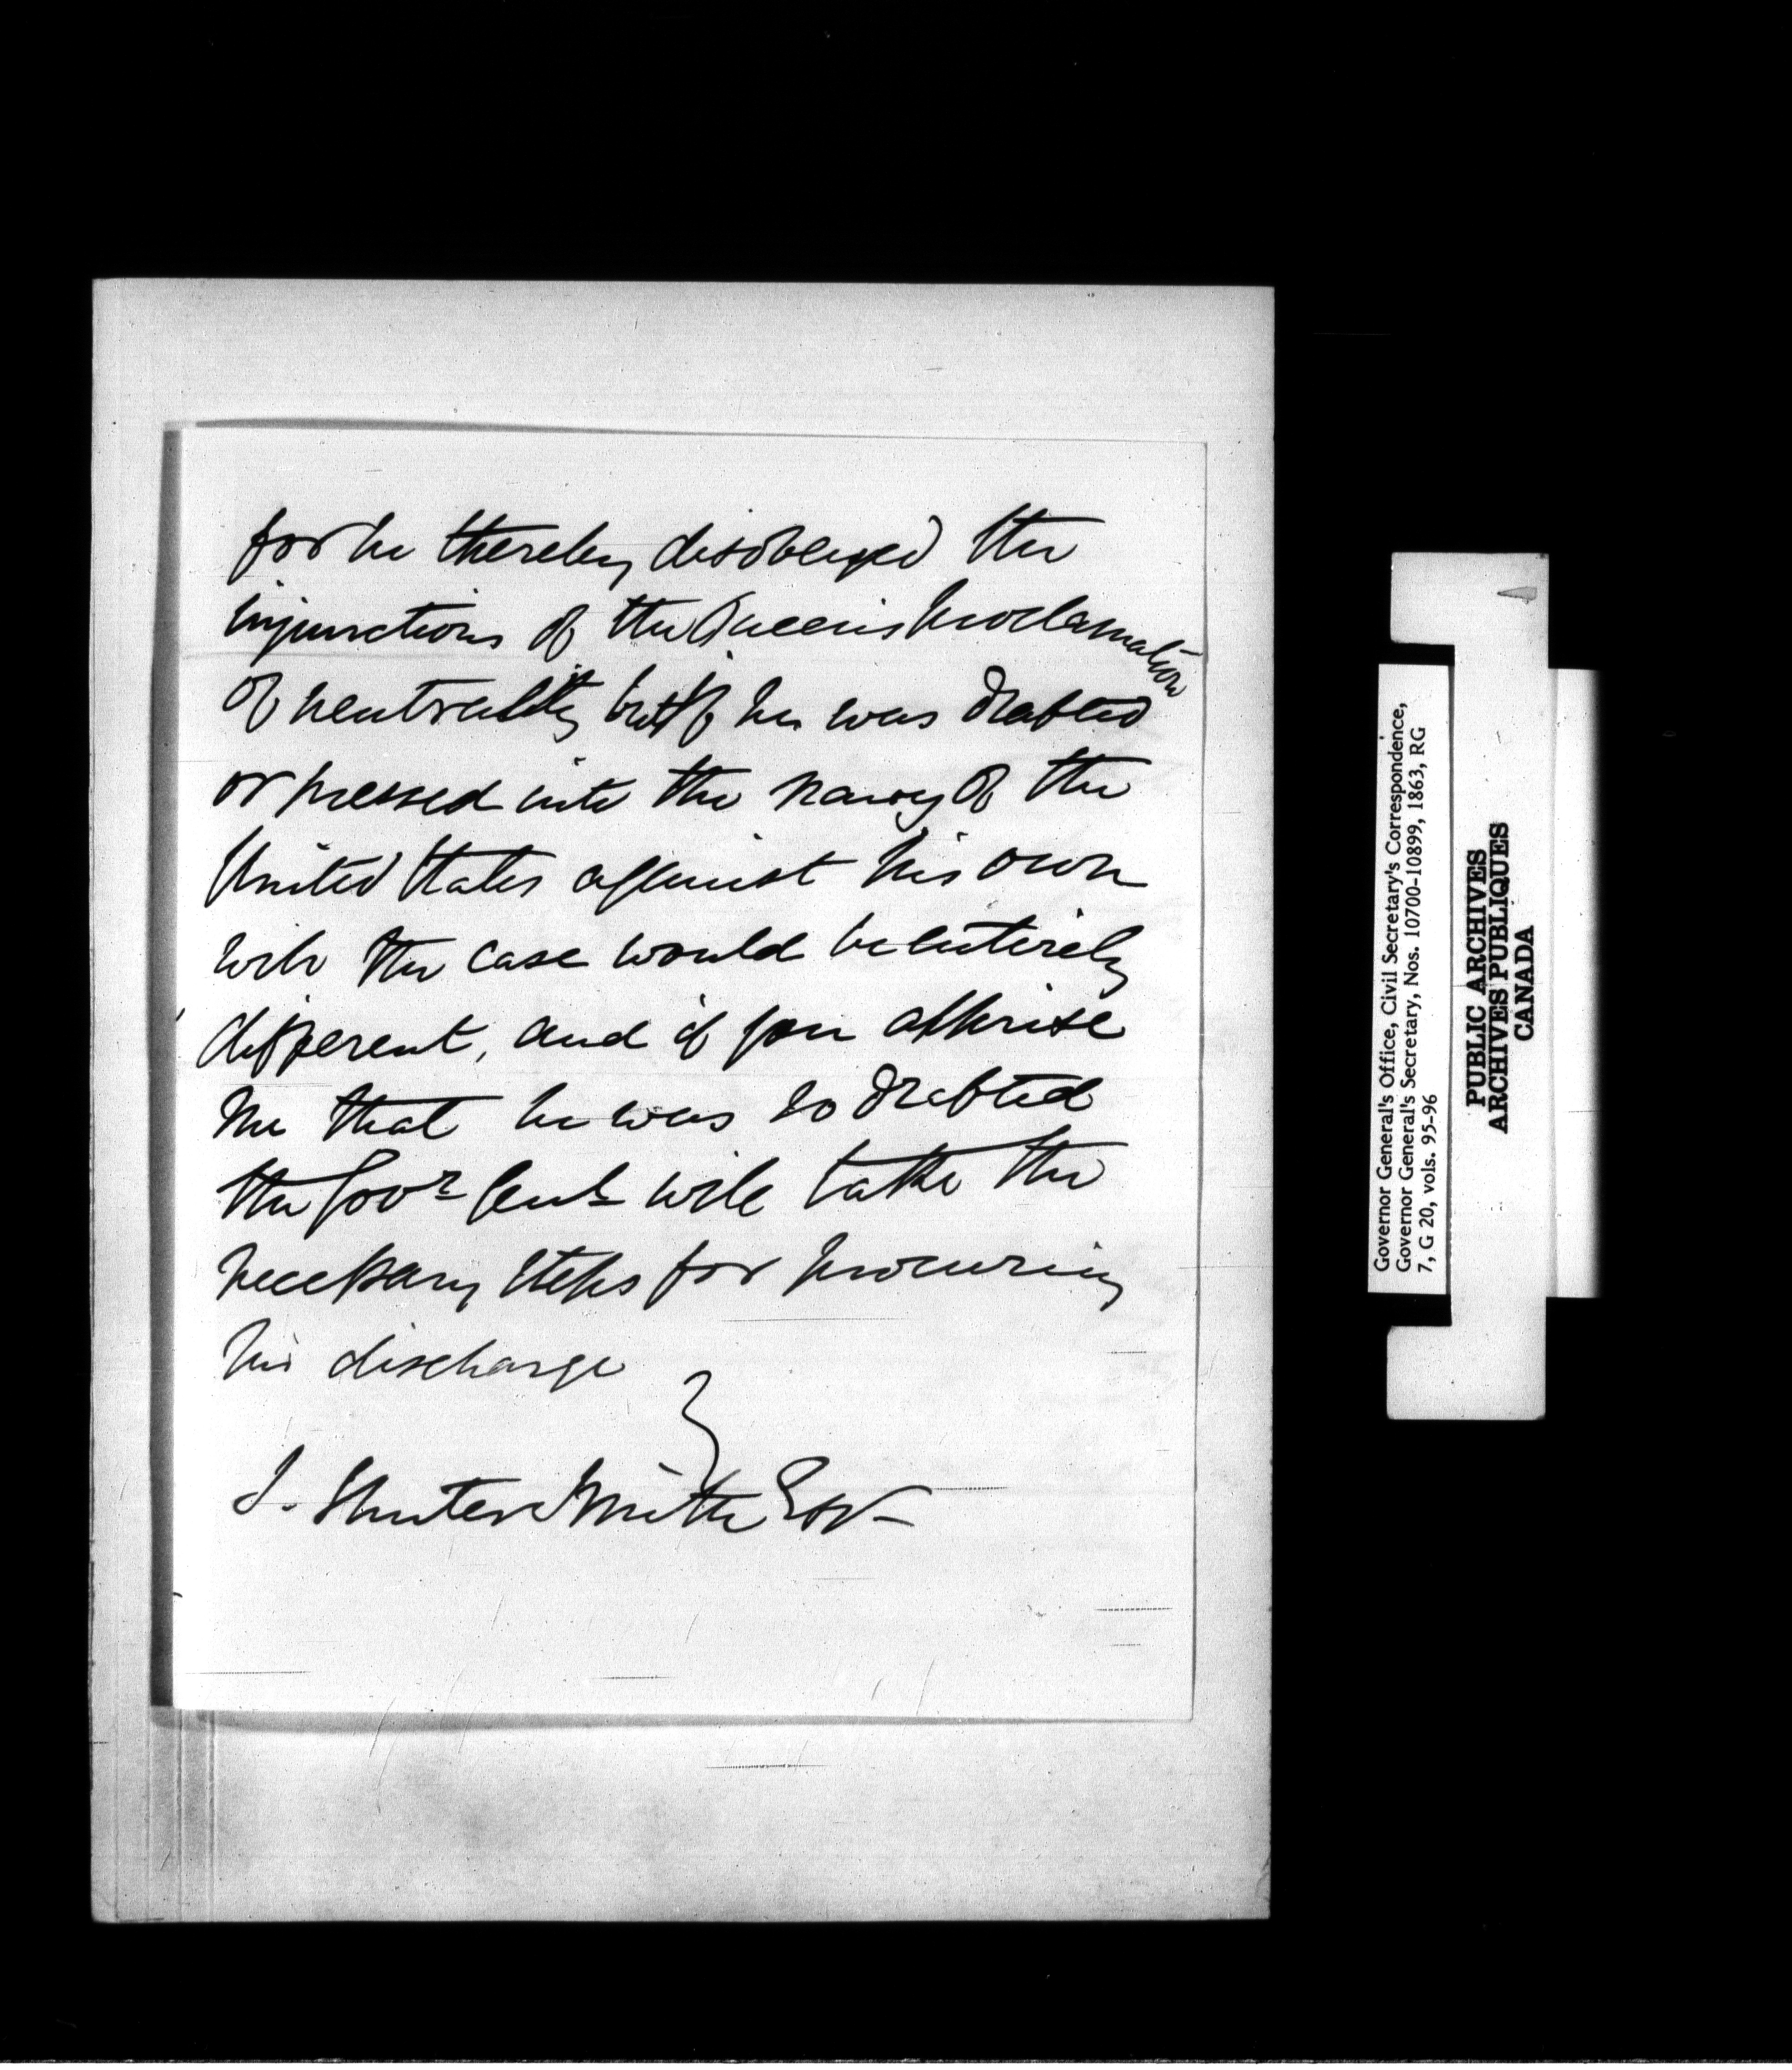 for he thereby disobeyed the
injunctions of the Queen's proclamation
of neutrality but if he was drafted
or pressed into the navy of the
United States against his own
will the case would be entirely
different, and if you apprise
me that he was so drafted
the Govr Genl will take the
necessary steps for procuring
his discharge
J. Shuter Smith Esqr
Governor General's Office, Civil Secretary's Correspondence,
Governor General's Secretary, Nos. 10700-10899, 1863, RG
7, G 20, vols. 95-96
PUBLIC ARCHIVES
ARCHIVES PUBLIQUES
CANADA